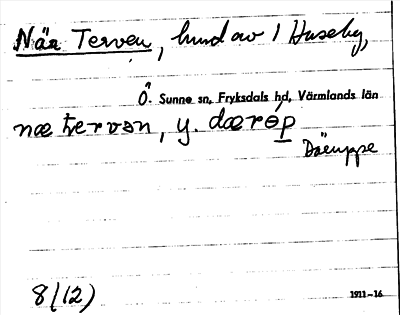 När Terven, hund av 1 Huseby,
Ö. Sunne sn, Fryksdals hd, Värmlands län
næ tervən, y. dærəp
Däruppe
8(12)
1911–16